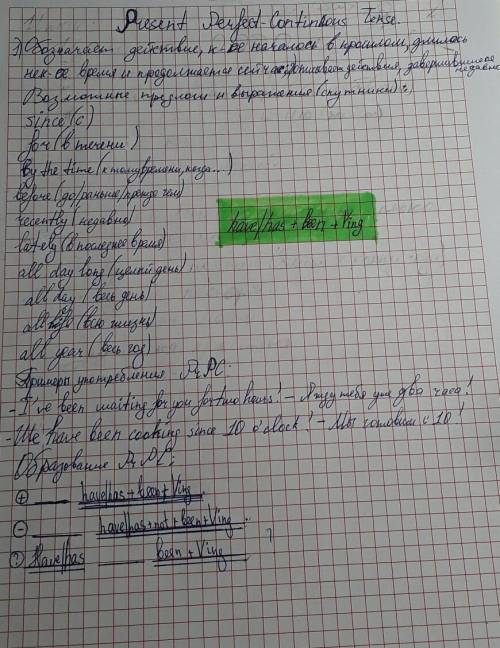 Present Perfect-Continuous Tense.
1) Обозначает действие, к-ое началось в прошлом, длилось
нек-ое время и продолжается сейчас, описывает действия, завершившиеся
недавно
Возможные предлоги и выражения (спутники):
since (с)
for (в течении)
by the time (к тому времени, когда...)
before (до/раньше/прежде чем)
recently (недавно)
have/has + been + Ving
lately (в последнее время)
all day long (целый день)
all day (весь день)
all life (всю жизнь)
all year (весь год)
Примеры употребления P.P.C.
- I've been waiting for you for two hours! - Я жду тебя уже два часа!
- We have been cooking since 10 o'clock! - Мы готовим с 10!
Образование P.P.C:
+ ____ have/has + been + Ving.
- ____ have/has + not + been + Ving.
? Have/has ____ been + Ving ?